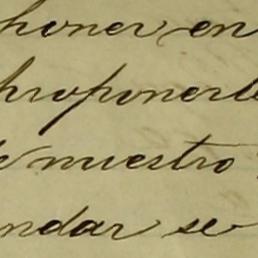 poner en
proponerle
nuestro
ndar se